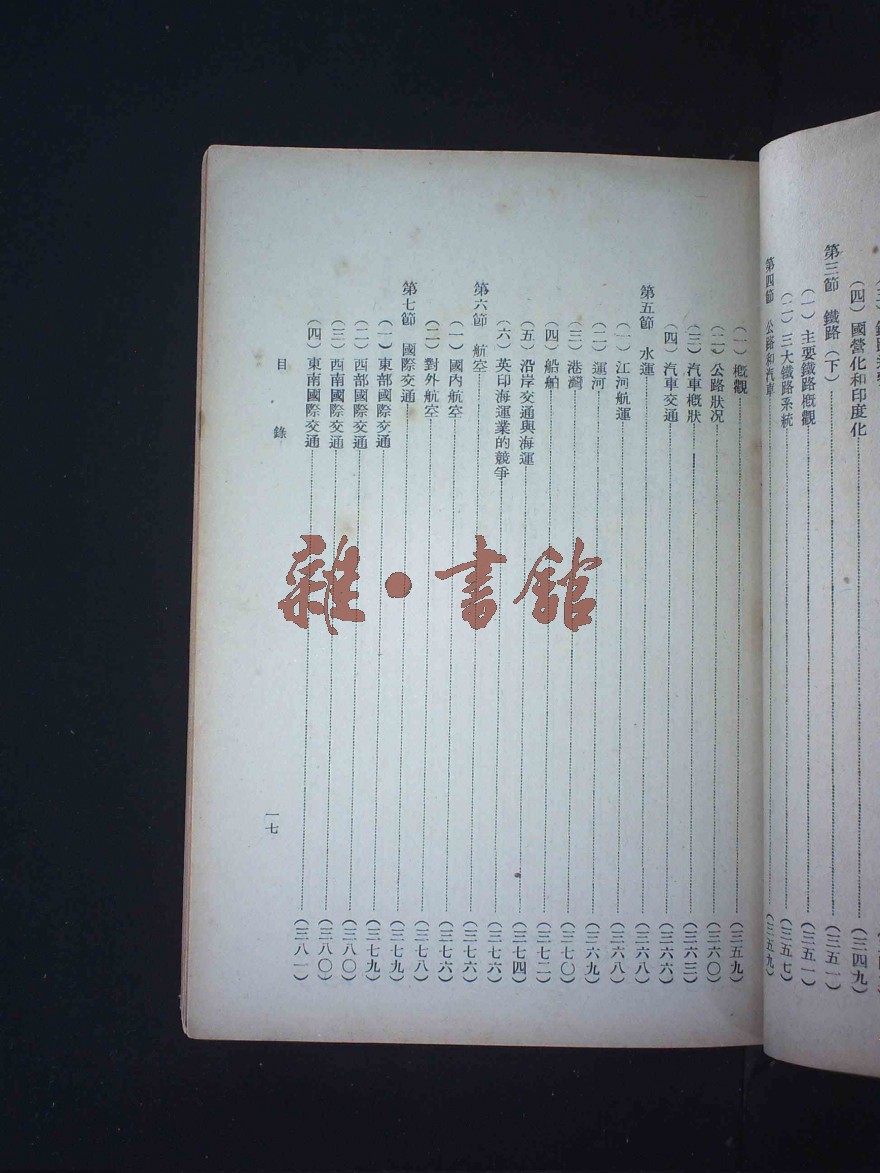 (四) 國營化和印度化 (三四九)
第三節 鐵路(下) (三五一)
(一) 主要鐵路概觀 (三五一)
(二) 三大鐵路系統 (三五七)
第四節 公路和汽車 (三五九)
(一) 概觀 (三五九)
(二) 公路狀況 (三六〇)
(三) 汽車概狀 (三六三)
(四) 汽車交通 (三六六)
第五節 水運 (三六八)
(一) 江河航運 (三六八)
(二) 運河 (三六九)
(三) 港灣 (三七〇)
(四) 船舶 (三七二)
(五) 沿岸交通與海運 (三七四)
(六) 英印海運業的競爭 (三七六)
第六節 航空 (三七六)
(一) 國內航空 (三七六)
(二) 對外航空 (三七八)
第七節 國際交通 (三七九)
(一) 東部國際交通 (三七九)
(二) 西部國際交通 (三八〇)
(三) 西南國際交通 (三八〇)
(四) 東南國際交通 (三八一)
目 錄
一七
雜·書館